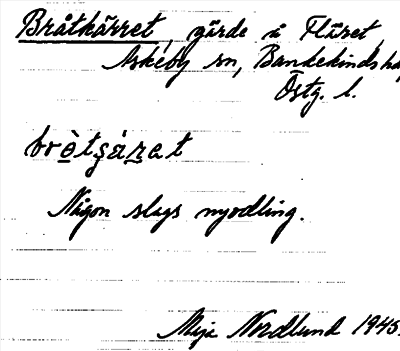 Bråtkärret, gärde i Fläret,
Askeby sn, Bankekinds hd,
Östg. l.
bròtʂáṛet
Någon slags nyodling.
Maja Nordlund 1945.